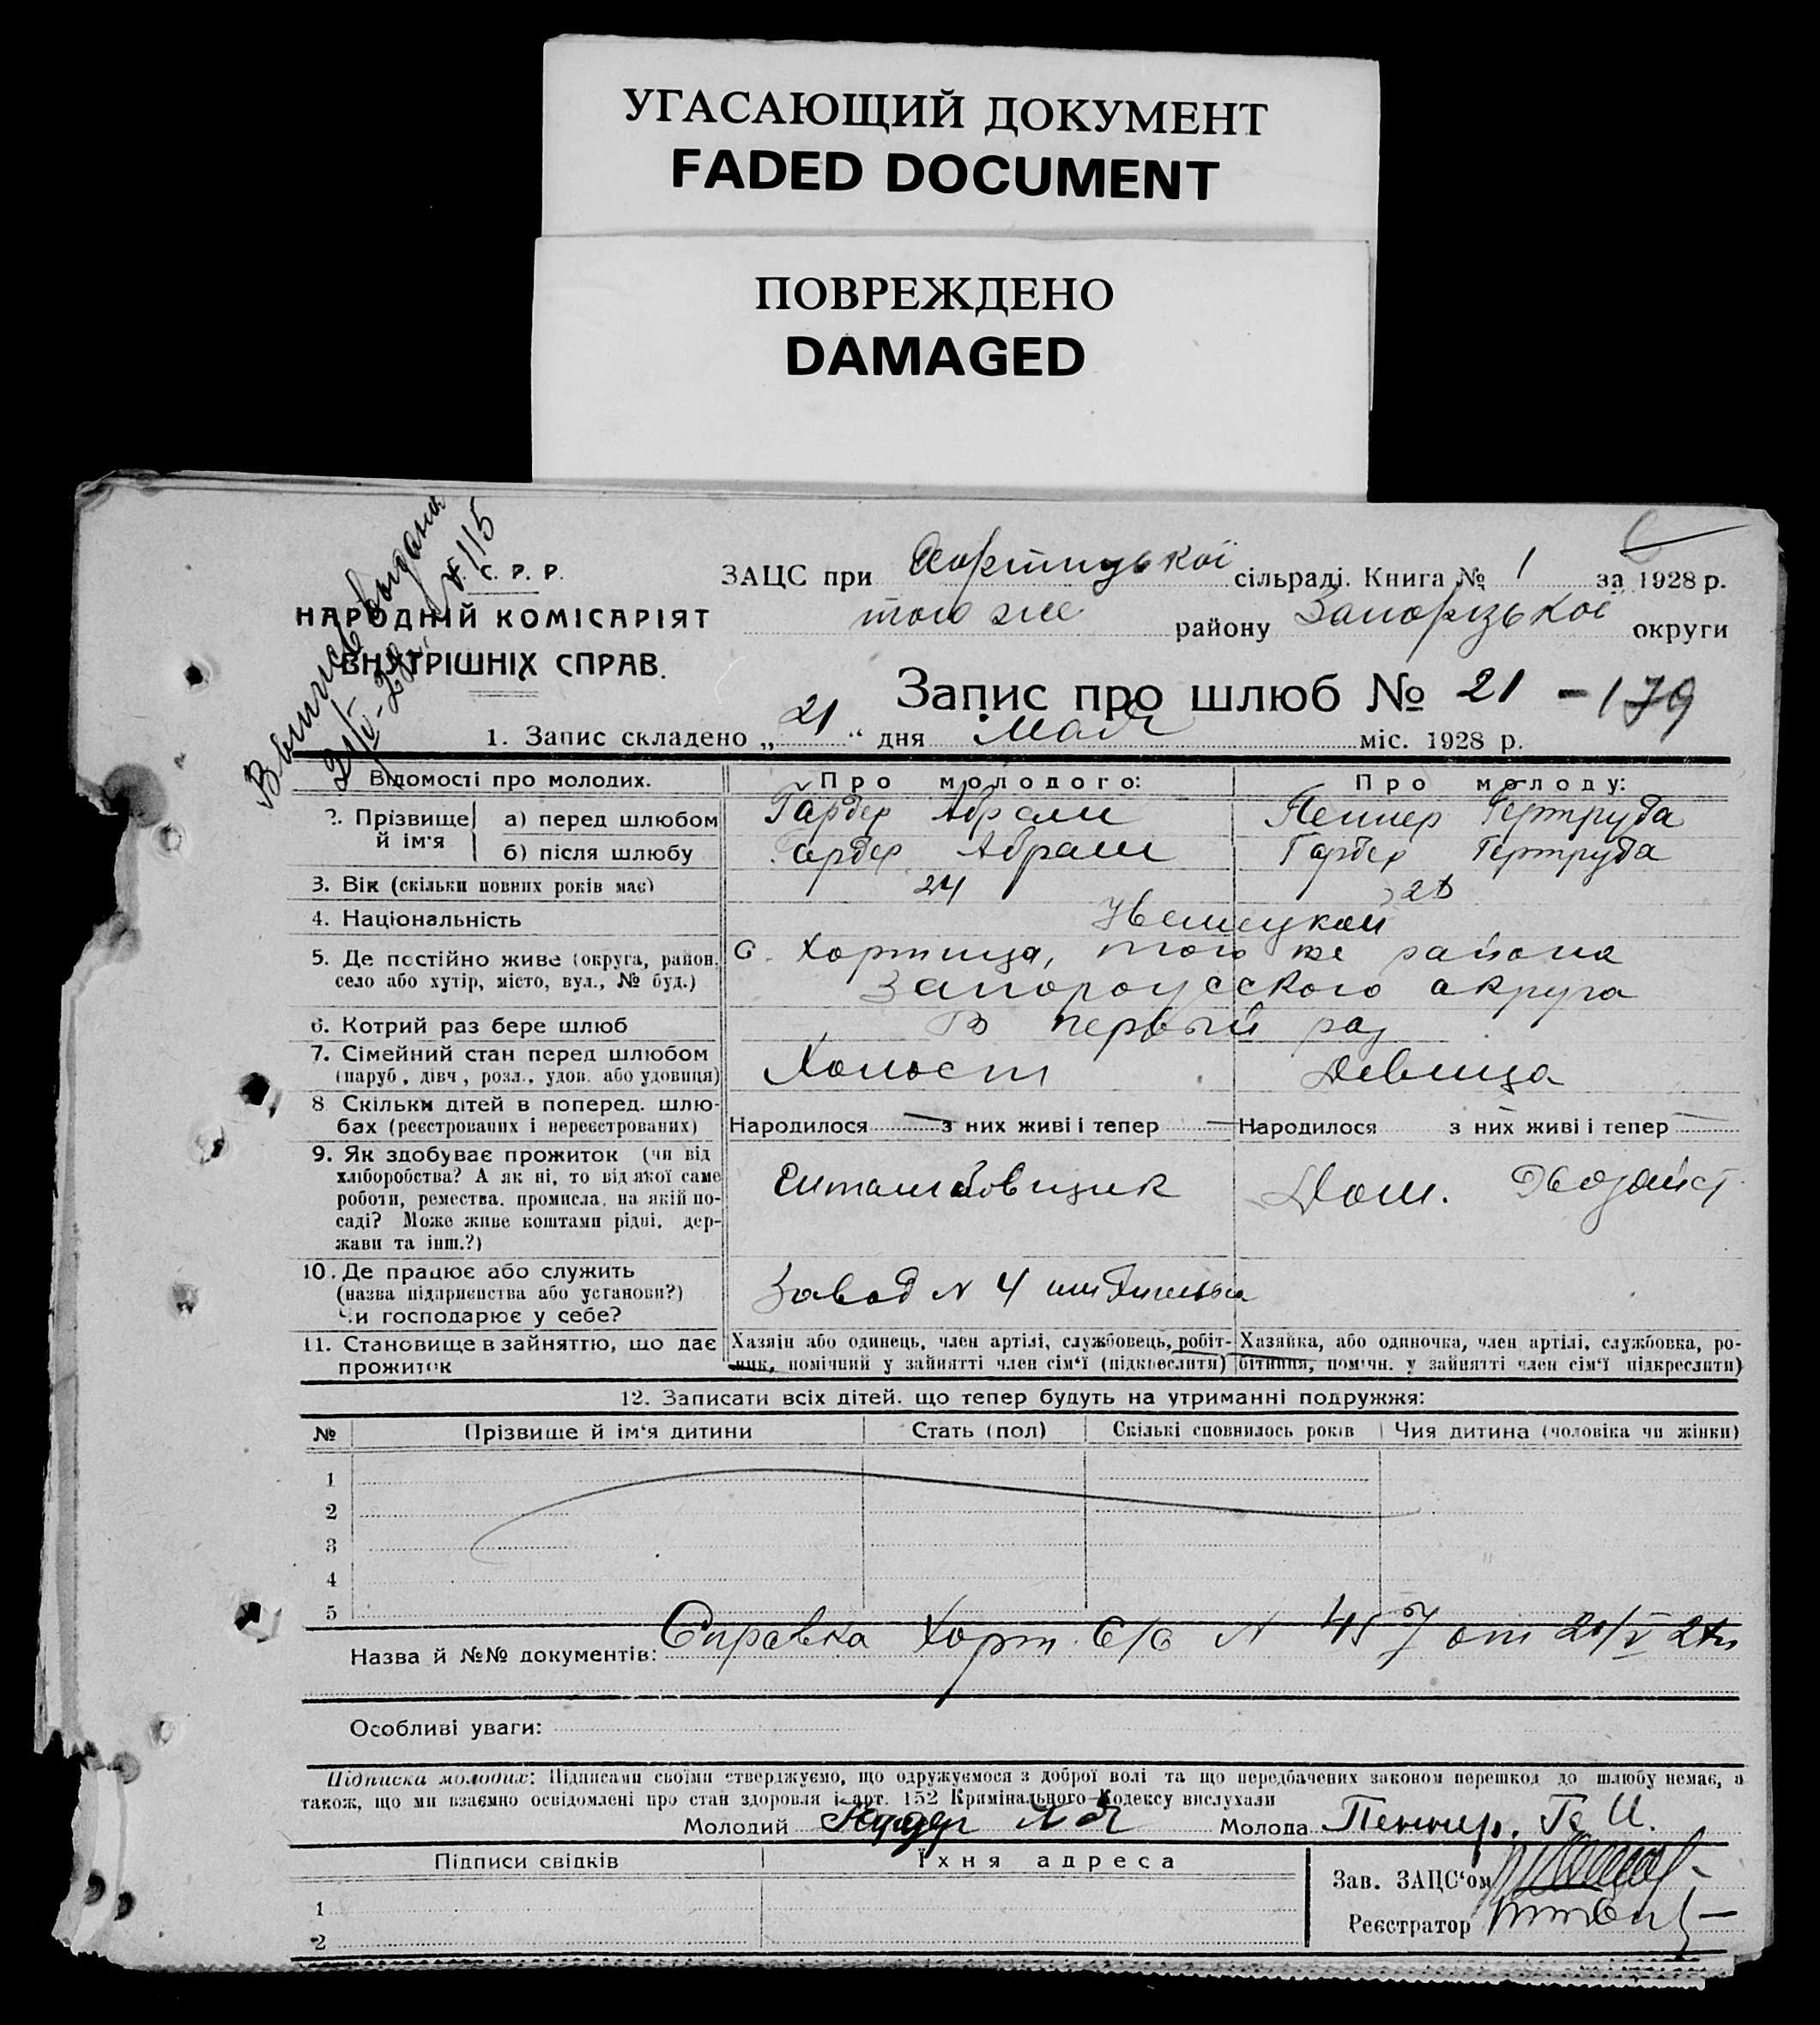 УГАСАЮЩИЙ ДОКУМЕНТ
FADED DOCUMENT
ПОВРЕЖДЕНО
DAMAGED
Выпись выдана
№ 115
С. Р. Р.
НАРОДНІЙ КОМІСАРІЯТ
ВНУТРІШНІХ СПРАВ.
ЗАЦС при Хортицької сільраді. Книга № 1 за 1928 р.
того же району Запорізької округи
Запис про шлюб № 21 - 179
1. Запис складено „21“ дня Мая міс. 1928 р.
Відомості про молодих. Про молодого: Про молоду:
2. Прізвище й ім'я
а) перед шлюбом Гардер Абрам Пеннер Гертруда
б) після шлюбу Гардер Абрам Гардер Гертруда
3. Вік (скільки повних років має) 24
4. Національність Немецкой
5. Де постійно живе (округа, район, село або хутір, місто, вул., № буд.) С. Хортица, того же района
округа
6. Котрий раз бере шлюб В первый раз
7. Сімейний стан перед шлюбом Холост Девица
(паруб, дівч, розл., удов. або удовиця)
8 Скільки дітей в поперед. шлю-
бах (реєстрованих і нереєстрованих) Народилося — з них живі і тепер — Народилося — з них живі і тепер —
9. Як здобуває прожиток (чи від
хліборобства? А як ні, то від якої саме
роботи, ремества, промисла, на якій по-
саді? Може живе коштами рідні, дер-
жави та інш.?)
Дом.
10. Де працює або служить
(назва підприємства або установи?)
Чи господарює у себе?
Завод N 4
11. Становище в зайняттю, що дає
прожиток
Хазяін або одинець, член артілі, службовець, робіт-
ник, помічний у зайнятті член сім'ї (підкреслити)
Хазяйка, або одиночка, член артілі, службовка, ро-
бітниця, помічн. у зайнятті член сім'ї підкреслити)
12. Записати всіх дітей. що тепер будуть на утриманні подружжя:
№ Прізвище й ім'я дитини Стать (пол) Скількі сповнилось років Чия дитина (чоловіка чи жінки)
1
2
3
4
5
Назва й №№ документів: Справка Хорт. С/С N 457 от
Особливі уваги:
Підписка молодих: Підписами своїми стверджуємо, що одружуємося з доброї волі та що передбачених законом перешкод до шлюбу немає, а
також, що ми взаємно освідомлені про стан здоровля і арт. 152 Кримінального Кодексу вислухали
Молодий Молода Пеннер. Г. И.
Підписи свідків Їхня адреса
Зав. ЗАЦС'ом
1
Реєстратор
2